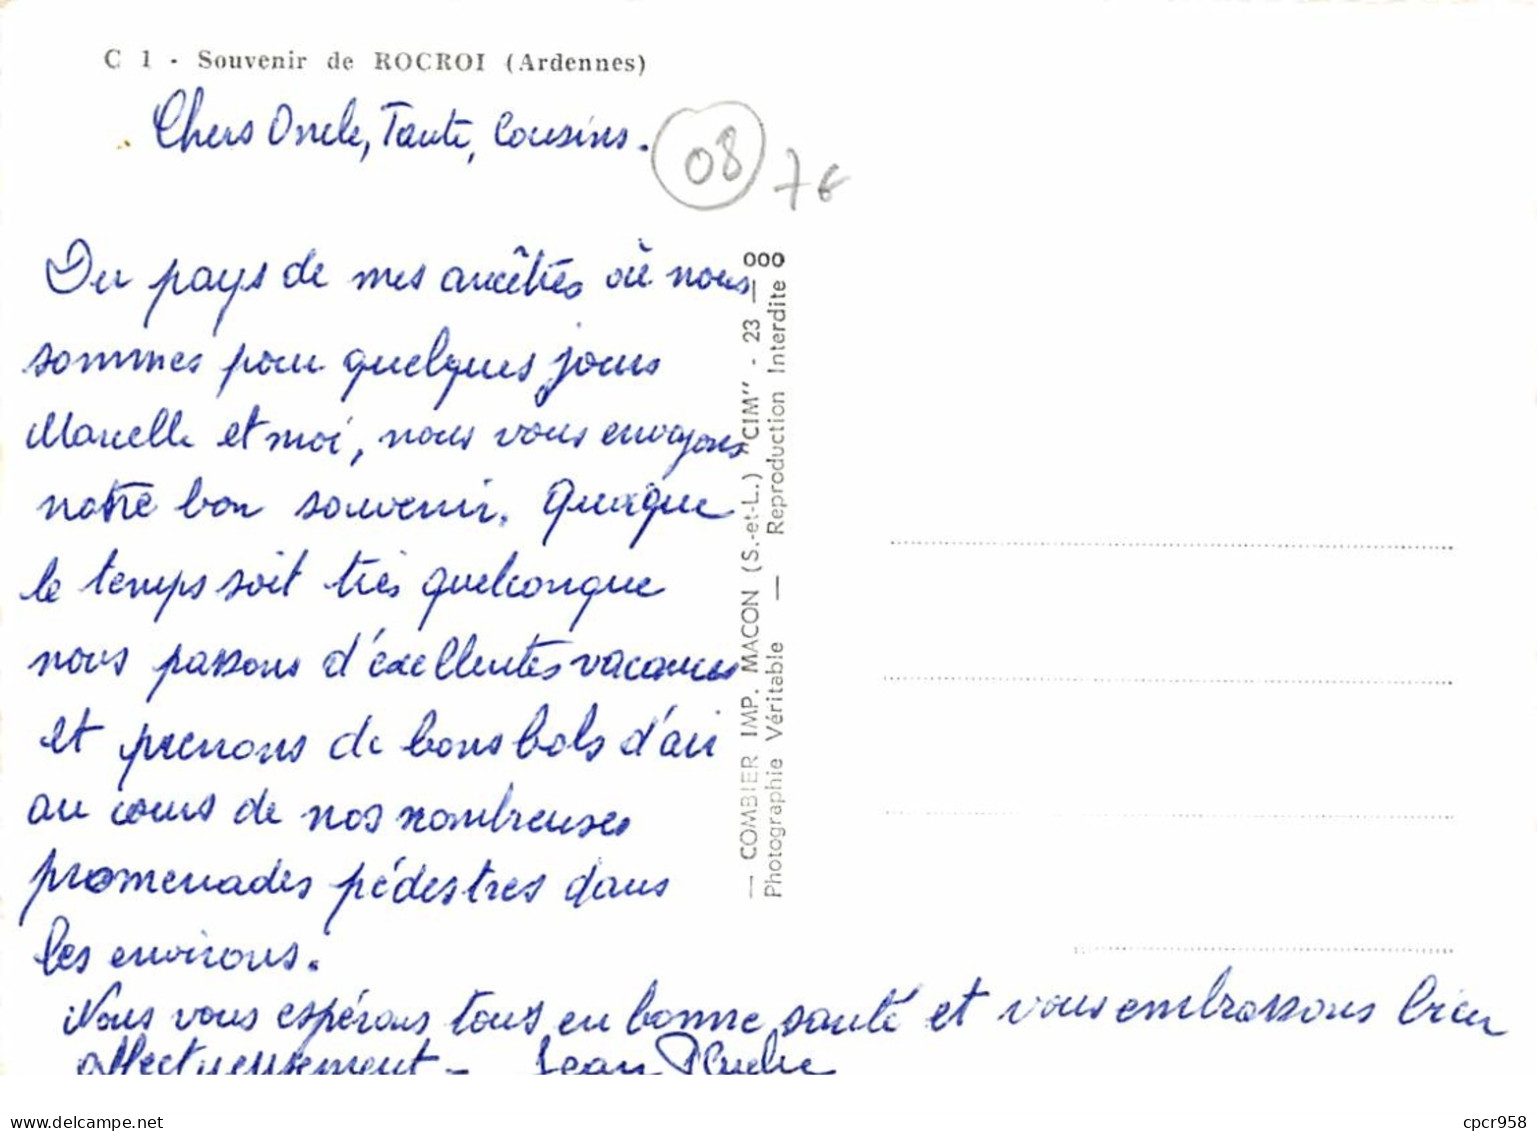 C 1 - Souvenir de ROCROI (Ardennes)
Chers Oncle, Tante, Cousins.
08
7€
Du pays de mes ancêtres où nous
sommes pour quelques jours
Marcelle et moi, nous vous envoyons
notre bon souvenir. Quoique
le temps soit très quelconque
nous passons d'excellentes vacances
et prenons de bons bols d'air
au cours de nos nombreuses
promenades pédestres dans
les environs.
Nous vous espérons tous en bonne santé et vous embrassons bien
affectueusement - Jean
— COMBIER IMP. MACON (S.-et-L.) "CIM" - 23 — 000
Photographie Véritable — Reproduction Interdite
delcampe.net
cpcr958